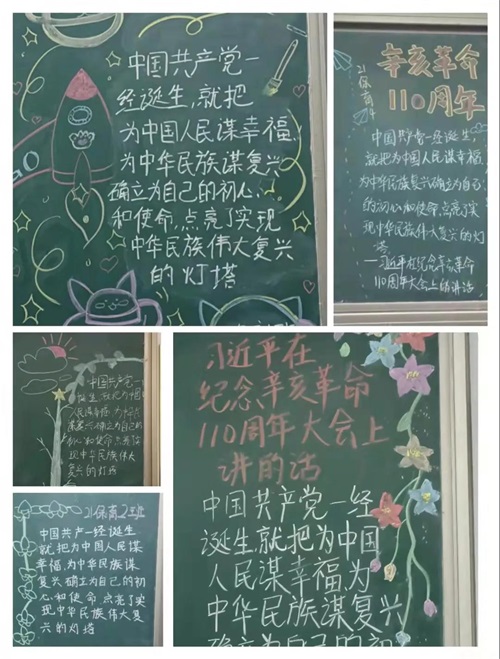 中国共产党一
经诞生,就把
为中国人民谋幸福,
为中华民族谋复兴
确立为自己的初心
和使命,点亮了实现
中华民族伟大复兴
的灯塔
GO
辛亥革命
110周年
21保育
中国共产党一经诞生,
就把为中国人民谋幸福,
为中华民族谋复兴确立为自己
的初心和使命,点亮了实
现中华民族伟大复兴的灯
塔
——习近平在纪念辛亥革命
110周年大会上的讲话
中国共产党一
经诞生,就把为中国
人民谋幸福,为中华民
族谋复兴确立为自己的
初心和使命,点亮了实
现中华民族伟大
复兴的灯塔
21保育2班
中国共产一经诞生
就把为中国人民谋
幸福,为中华民族谋
复兴确立为自己的初
心和使命,点亮了实
现中华民族伟大复
兴的灯塔
习近平在
纪念辛亥革命
110周年大会上
讲的话
中国共产党一经
诞生,就把为中国
人民谋幸福为
中华民族谋复兴
确立为自己的初